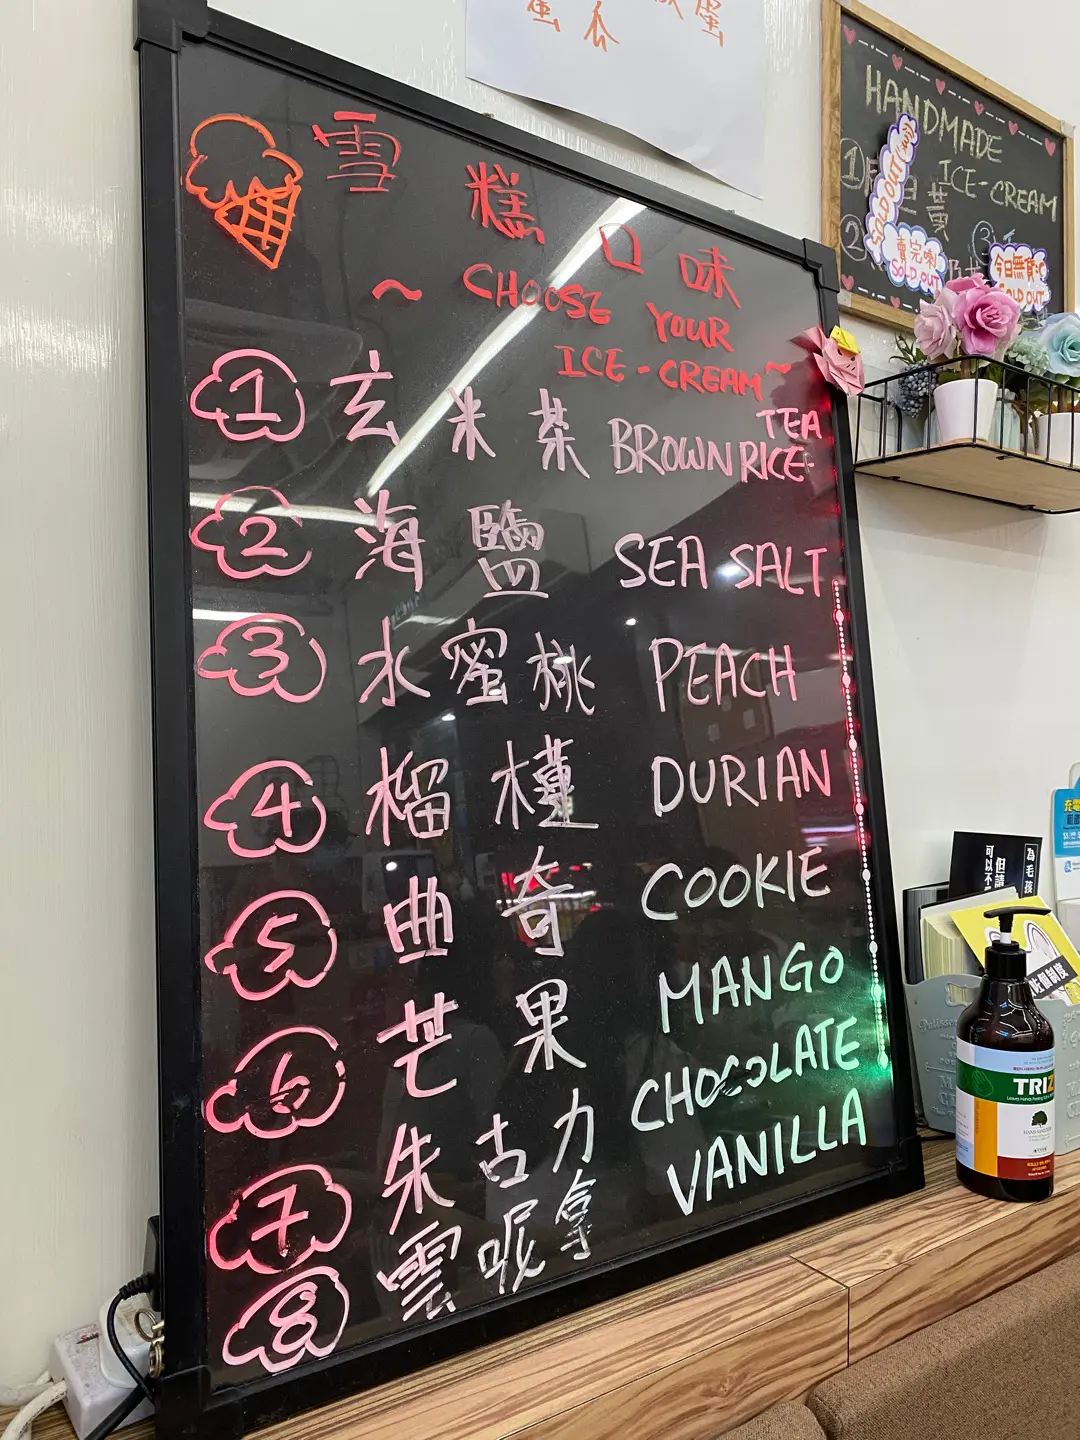 雪糕口味
~ CHOOSE YOUR
ICE-CREAM ~
1 玄米茶 BROWN RICE TEA
2 海鹽 SEA SALT
3 水蜜桃 PEACH
4 榴槤 DURIAN
5 曲奇 COOKIE
6 芒果 MANGO
7 朱古力 CHOCOLATE
8 雲呢拿 VANILLA
HANDMADE
ICE-CREAM
①
②
③
SOLD OUT
賣完喇
SOLD OUT
今日無貨
SOLD OUT
為毛孩
但請
可以不
TRIZ